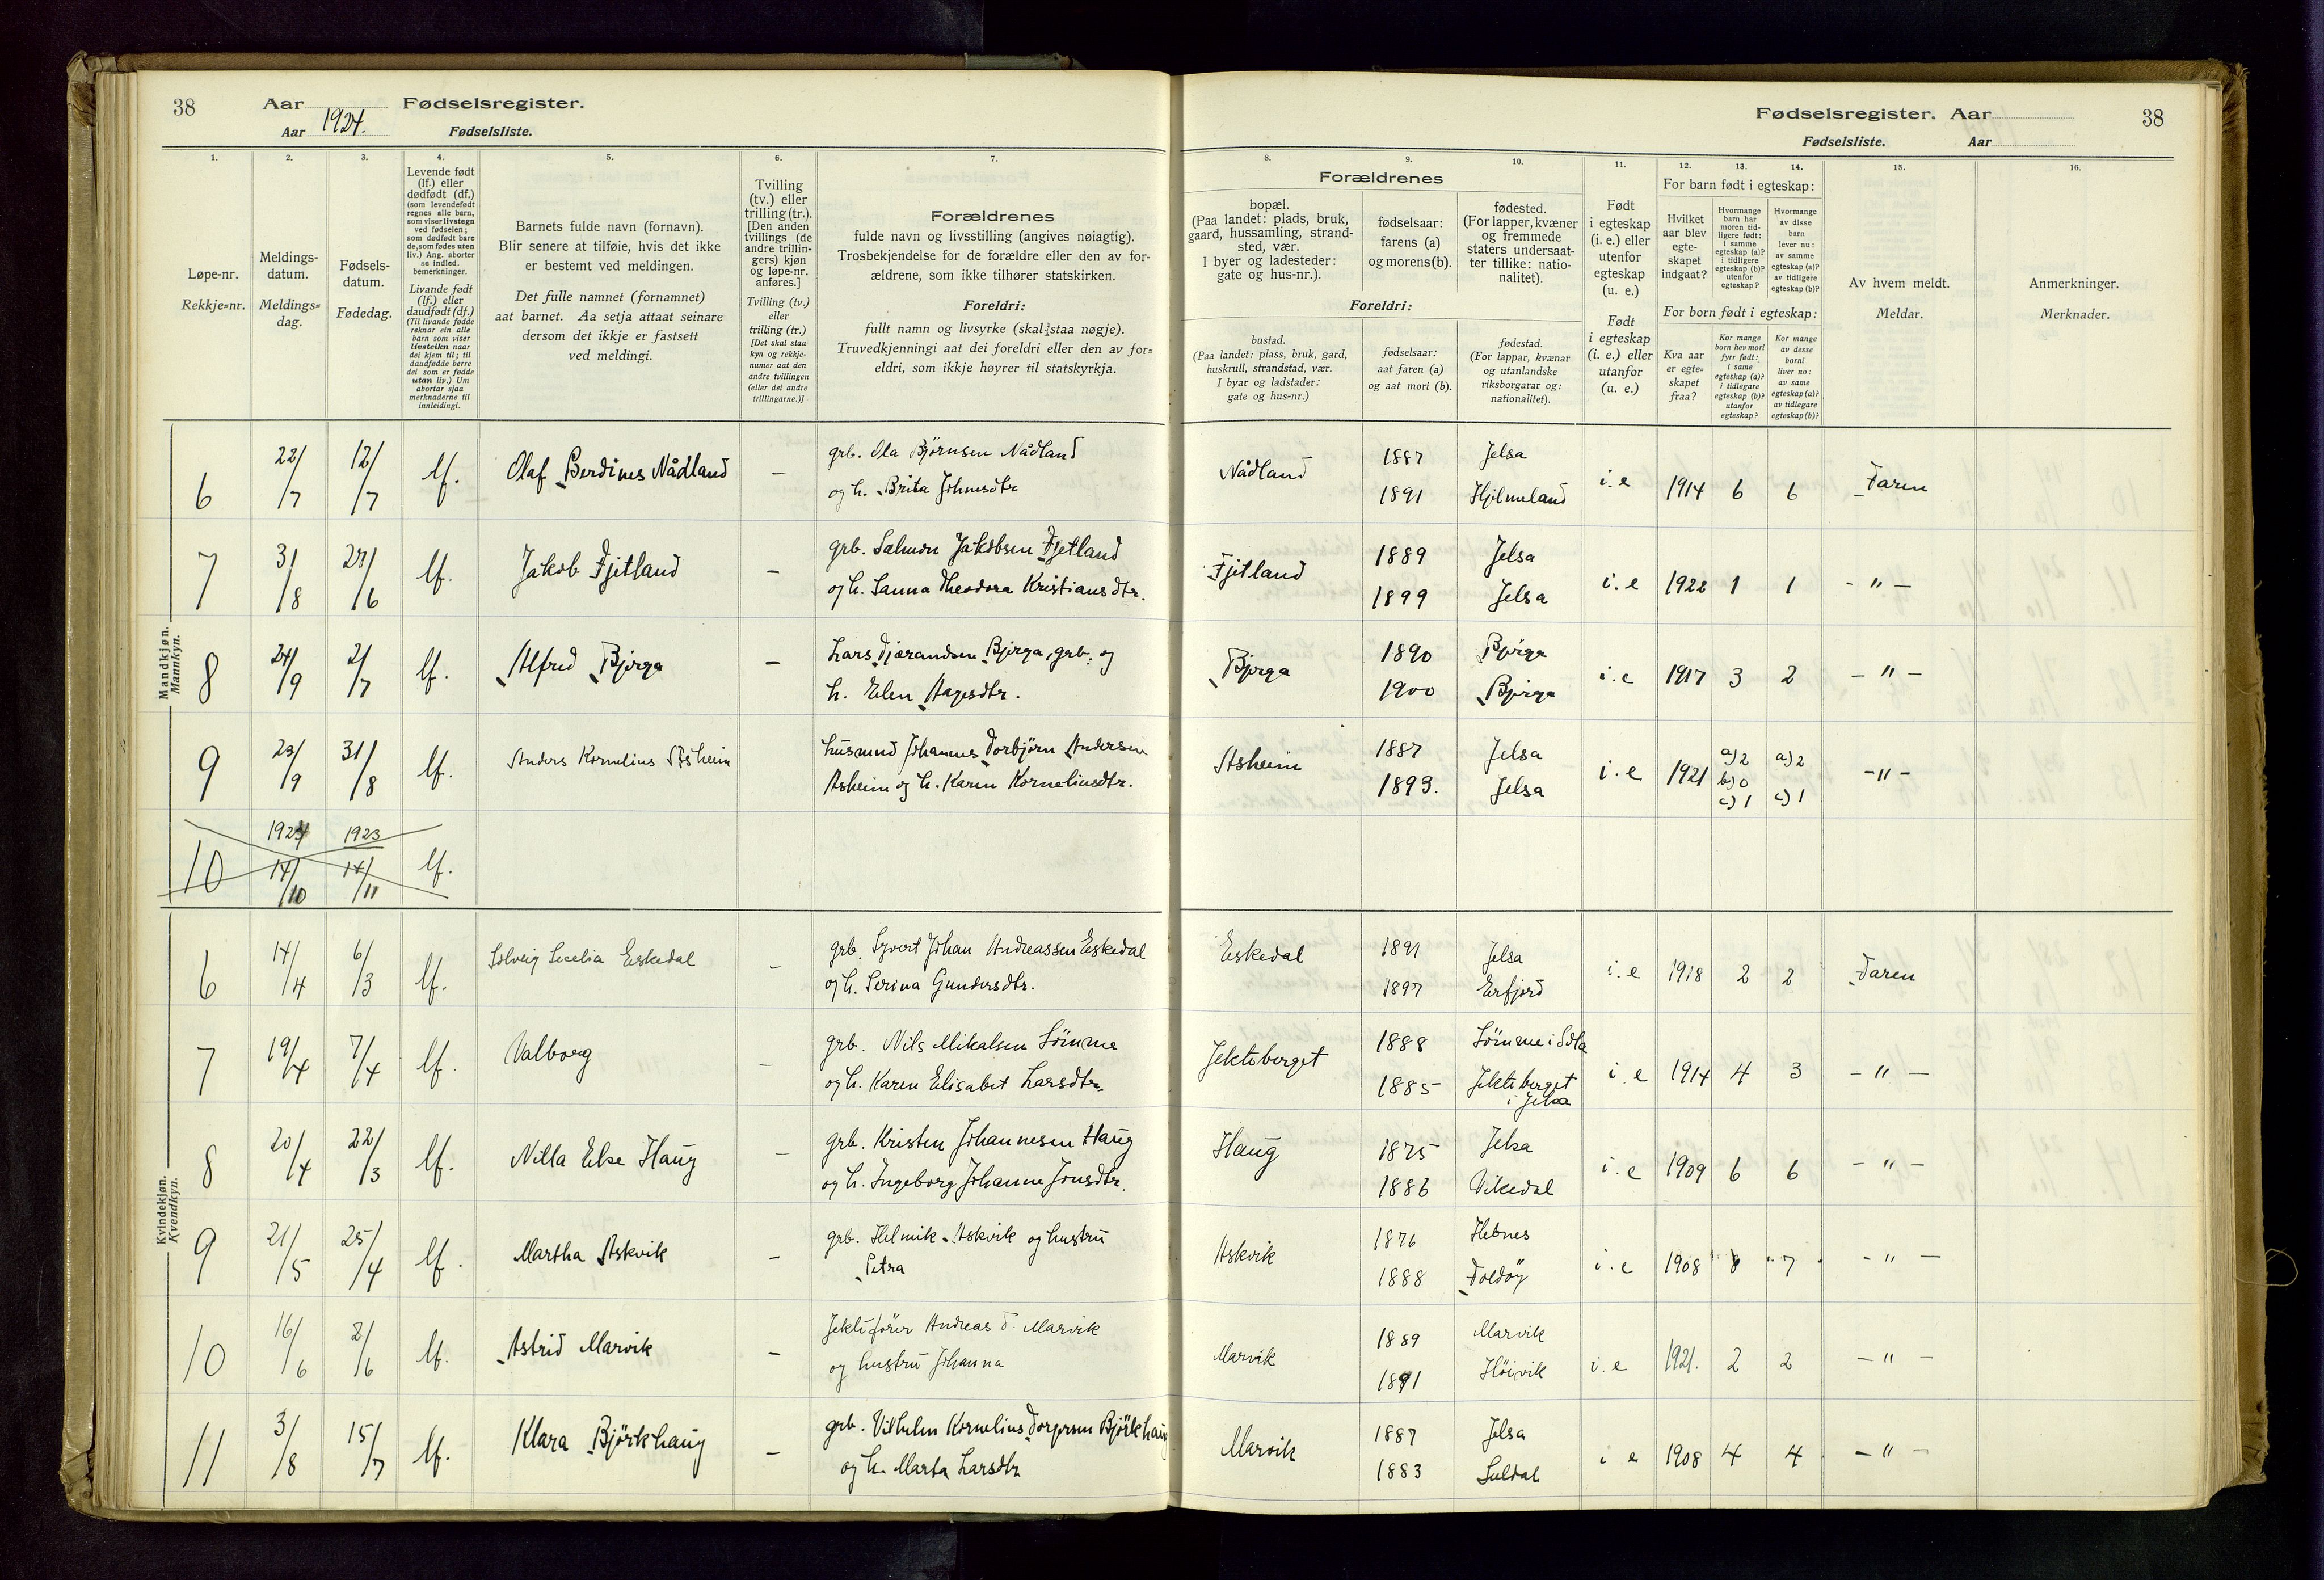 38 Aar Fødselsregister.
Aar 1924. Fødselsliste.
Fødselsregister. Aar 38
Fødselsliste. Aar
1. 2. 3. 4. 5. 6. 7. 8. 9. 10. 11. 12. 13. 14. 15. 16.
Løpe-nr.
Rekkje=nr.
Meldings-
datum.
Meldings=
dag.
Fødsels-
datum.
Fødedag.
Levende født
(lf.) eller
dødfødt (df.)
(som levendefødt
regnes alle barn,
som viser livstegn
ved fødselen;
som dødfødt bare
de, som fødes uten
liv.) Ang. aborter
se indled.
bemerkninger.
Livande født
(lf.) eller
daudfødt (df.)
(Til livande fødde
reknar ein alle
barn som viser
livsteikn naar
dei kjem til; til
daudfødde berre
dei som er fødde
utan liv.) Um
abortar sjaa
merknaderne til
innleidingi.
Barnets fulde navn (fornavn).
Blir senere at tilføie, hvis det ikke
er bestemt ved meldingen.
Det fulle namnet (fornamnet)
aat barnet. Aa setja attaat seinare
dersom det ikkje er fastsett
ved meldingi.
Tvilling
(tv.) eller
trilling (tr.).
[Den anden
tvillings (de
andre trillin-
gers) kjøn
og løpe-nr.
anføres.]
Tvilling (tv.)
eller
trilling (tr.)
[Det skal staa
kyn og rekkje-
numer aat den
andre tvillingen
(eller dei andre
trillingarne.)]
Forældrenes
fulde navn og livsstilling (angives nøiagtig).
Trosbekjendelse for de forældre eller den av for-
ældrene, som ikke tilhører statskirken.
Foreldri:
fullt namn og livsyrke (skal staa nøgje).
Truvedkjenningi aat dei foreldri eller den av for=
eldri, som ikkje høyrer til statskyrkja.
Forældrenes
bopæl.
(Paa landet: plads, bruk,
gaard, hussamling, strand-
sted, vær.
I byer og ladesteder:
gate og hus-nr.).
fødselsaar:
farens (a)
og morens (b).
fødested.
(For lapper, kvæner
og fremmede
staters undersaat-
ter tillike: natio-
nalitet).
Foreldri:
bustad.
(Paa landet: plass, bruk, gard,
huskrull, strandstad, vær.
I byar og ladstader:
gate og hus=nr.)
fødselsaar:
aat faren (a)
og aat mori (b).
fødestad.
(For lappar, kvænar
og utanlandske
riksborgarar og:
nationalitet).
Født
i egteskap
(i. e.) eller
utenfor
egteskap
(u. e.)
Født
i egteskap
(i. e.) eller
utanfor
(u. e.)
For barn født i egteskap:
Hvilket
aar blev
egte-
skapet
indgaat?
Hvormange
barn har
moren tid-
ligere født:
i samme
egteskap (a)?
i tidligere
egteskap (b)?
utenfor
egteskap?
Hvormange
av disse
barn
lever nu:
av samme
egteskap (a)?
av tidligere
egteskap (b)?
For born født i egteskap:
Kva aar
er egte=
skapet
fraa?
Kor mange
born hev mori
fyrr født:
i same
egteskap (a)?
i tidlegare
egteskap (b)?
utanfor
egteskap?
Kor mange
av desse
borni
liver no:
av same
egteskap (a)?
av tidlegare
egteskap (b)?
Av hvem meldt.
Meldar.
Anmerkninger.
Merknader.
Mandkjøn.
Mannkyn.
6 22/7 12/7 lf. Olaf Berdines Nådland – grb. Ola Björnsen Nådland Nådland 1887 Jelsa i.e 1914 6 6 Faren
og h. Brita Johnsdtr 1891 Hjelmeland
7 3/8 27/6 lf. Jakob Fjetland – grb. Salmon Jakobsen Fjetland Fjetland 1889 Jelsa i.e 1922 1 1 – " –
og h. Sanna Theodora Kristiansdtr. 1899 Jelsa
8 24/9 2/7 lf. Alfred Bjørga – Lars Tjærandsen Bjørga, grb. og Bjørga 1890 Bjørga i.e 1917 3 2 – " –
h. Elen Aagesdtr. 1900 Bjørga
9 23/9 31/8 lf. Anders Kornelius Åsheim husmnd Johannes Torbjörn Andersen Asheim 1887 Jelsa i.e 1921 a) 2 b) 0 c) 1 a) 2 c) 1 – " –
Asheim og h. Karen Korneliusdtr. 1893. Jelsa
10 1924 14/10 1923 14/11 lf.
Kvindekjøn.
Kvendkyn.
6 14/4 6/3 lf. Solveig Secelia Eskedal – grb. Syvert Johan Andreassen Eskedal Eskedal 1891 Jelsa i.e 1918 2 2 Faren
og h. Serina Gundersdtr. 1897 Erfjord
7 19/4 7/4 lf. Valborg – grb. Nils Mikalsen Sömme Jekteberget 1888 Sömme i Sola i.e 1914 4 3 – " –
og h. Karen Elisabet Larsdtr. 1885 Jekteberget
i Jelsa
8 20/4 22/3 lf. Nilla Elise Haug – grb. Kristen Johannesen Haug Haug 1875 Jelsa i.e 1909 6 6 – " –
og h. Ingeborg Johanne Jonsdtr. 1886 Vikedal
9 21/5 25/4 lf. Martha Askvik – grb. Helmik Askvik og hustru Askvik 1876 Hebnes i.e 1908 8 7 – " –
Petra 1888 Foldöy
10 16/6 2/6 lf. Astrid Marvik – Jektefører Andreas T. Marvik Marvik 1889 Marvik i.e 1921. 2 2 – " –
og hustru Johanna 1891 Höivik
11 3/8 15/7 lf. Klara Björkhaug – grb. Vilhelm Kornelius Torgersen Björkhaug Marvik 1887 Jelsa i e 1908 4 4 – " –
og h. Marta Larsdtr 1883 Suldal